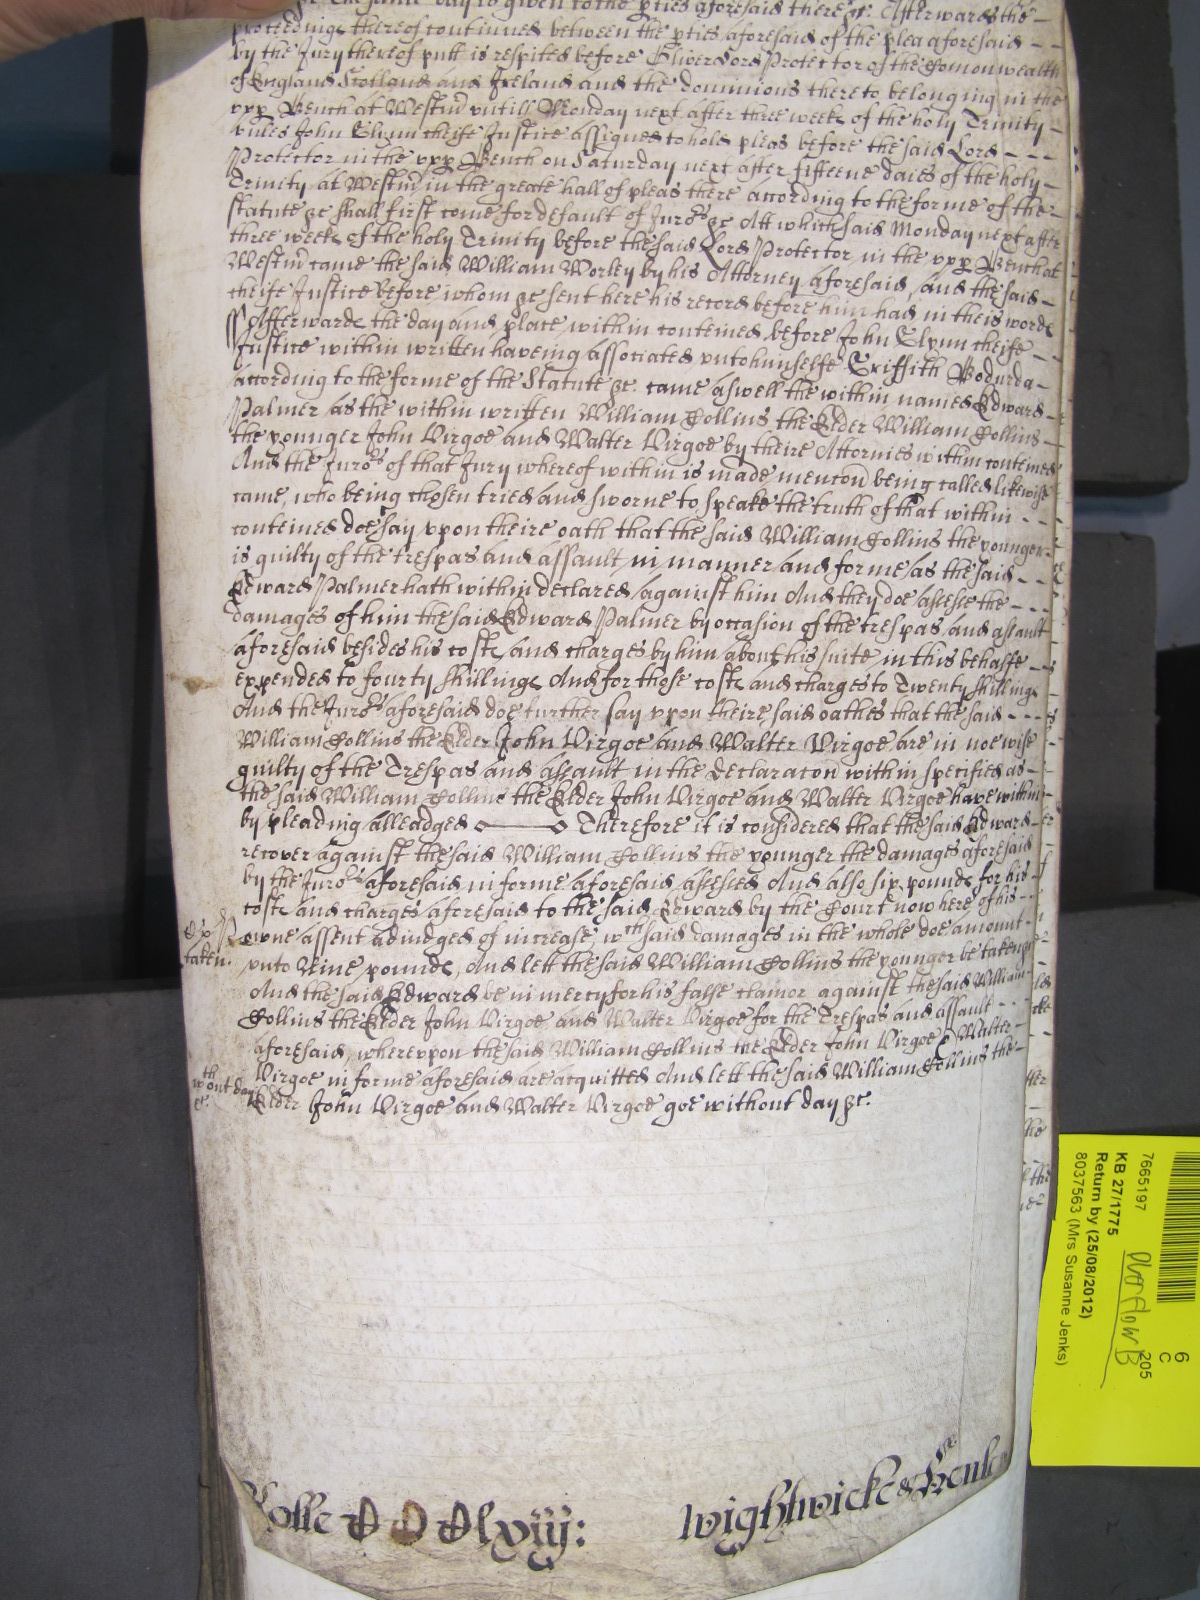 The same day is given to the pties aforesaid there &c. Afterwards the
proceedings thereof continued between the pties aforesaid of the plea aforesaid
by the Jury thereof putt is respited before Oliver Lord Protector of the Comonwealth
of England Scotland and Ireland and the dominions there to belonging in the
vpp Bench at Westm untill Monday next after three weeks of the holy Trinity
unles John Glynn cheife Justice assigned to hold pleas before the said Lord
Protector in the vpp Bench on Saturday next after fifteene daies of the holy
Trinity at Westm in the greate hall of pleas there according to the forme of the
statute &c shall first come for default of Juro:rs &c Att which said Monday next after
three weeks of the holy Trinity before the said Lord Protector in the vpp Bench at
Westm came the said William Worley by his Attorney aforesaid, and the said
cheife Justice before whom &c sent here his record before him had in theis words
ss Afterwards the day and place within conteined before John Glynn cheife
Justice within written haveing associated unto himselfe Griffith Bodurda
according to the forme of the Statute &c. came aswell the within named Edward
Palmer as the within written William Collins the Elder William Collins
the younger John Virgoe and Walter Virgoe by theire Attornies within conteined
And the Juro:rs of that Jury whereof within is made mencon being called likewise
came, who being chosen tried and sworne to speake the truth of that within
conteined doe say upon theire oath that the said William Collins the younger
is guilty of the trespas and assault in manner and forme as the said
Edward Palmer hath within declared against him And they doe assesse the
damages of him the said Edward Palmer by occasion of the trespas and assault
aforesaid besides his costs and charges by him about his suite in this behalfe
expended to fourty shillings And for those costs and charges to Twenty shillings
And the Juro:rs aforesaid doe further say upon theire said oathes that the said
William Collins the Elder John Virgoe and Walter Virgoe are in noe wise
guilty of the Trespas and assault in the declaracon within specified as
the said William Collins the Elder John Virgoe and Walter Virgoe have within
by pleading alleadged Therefore it is considered that the said Edward
recover against the said William Collins the younger the damages aforesaid
by the Juro:rs aforesaid in forme aforesaid assessed And also six pounds for his
costs and charges aforesaid to the said Edward by the Court now here of his
owne assent adiudged of increase, wth said damages in the whole doe amount
taken.
unto Nine pounds, And lett the said William Collins the younger be taken
And the said Edward be in mercy for his false clamor against the said William
Collins the Elder John Virgoe and Walter Virgoe for the Trespas and assault
aforesaid, whereupon the said William Collins the Elder John Virgoe & Walter
Virgoe in forme aforesaid are acquitted And lett the said William Collins the
wthout day &c.
Elder John Virgoe and Walter Virgoe goe without day &c.
Rolle DDDlxiij:
Wightwicke &
7665197
KB 27/1775
Return by (25/08/2012)
8037563 (Mrs Susanne Jenks)
overflow B
205
6
C